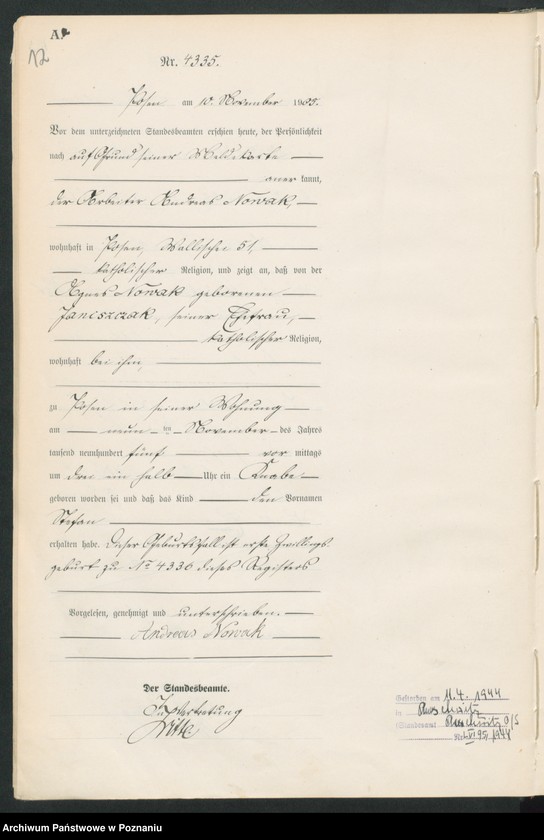 A.
12
Nr. 4335.
Posen am 10. November 1905.
Vor dem unterzeichneten Standesbeamten erschien heute, der Persönlichkeit
nach auf Grund seiner Meldekarte
anerkannt,
der Arbeiter Andreas Nowak,
wohnhaft in Posen, Wallischei 51,
katholischer Religion, und zeigt an, daß von der
Agnes Nowak geborenen
Janiszczak, seiner Ehefrau,
katholischer Religion,
wohnhaft bei ihm,
zu Posen in seiner Wohnung
am neun ten November des Jahres
tausend neunhundert fünf vor mittags
um drei ein halb Uhr ein Knabe
geboren worden sei und daß das Kind den Vornamen
Stefan
erhalten habe. Dieser Geburtsfall ist erste Zwillings-
geburt zu No 4336 dieses Registers
Vorgelesen, genehmigt und unterschrieben.
Andreas Nowak
Der Standesbeamte.
In Vertretung
Gestorben am 11.4.1944
in Auschwitz
(Standesamt Auschwitz O/S
1944
Archiwum Państwowe w Poznaniu